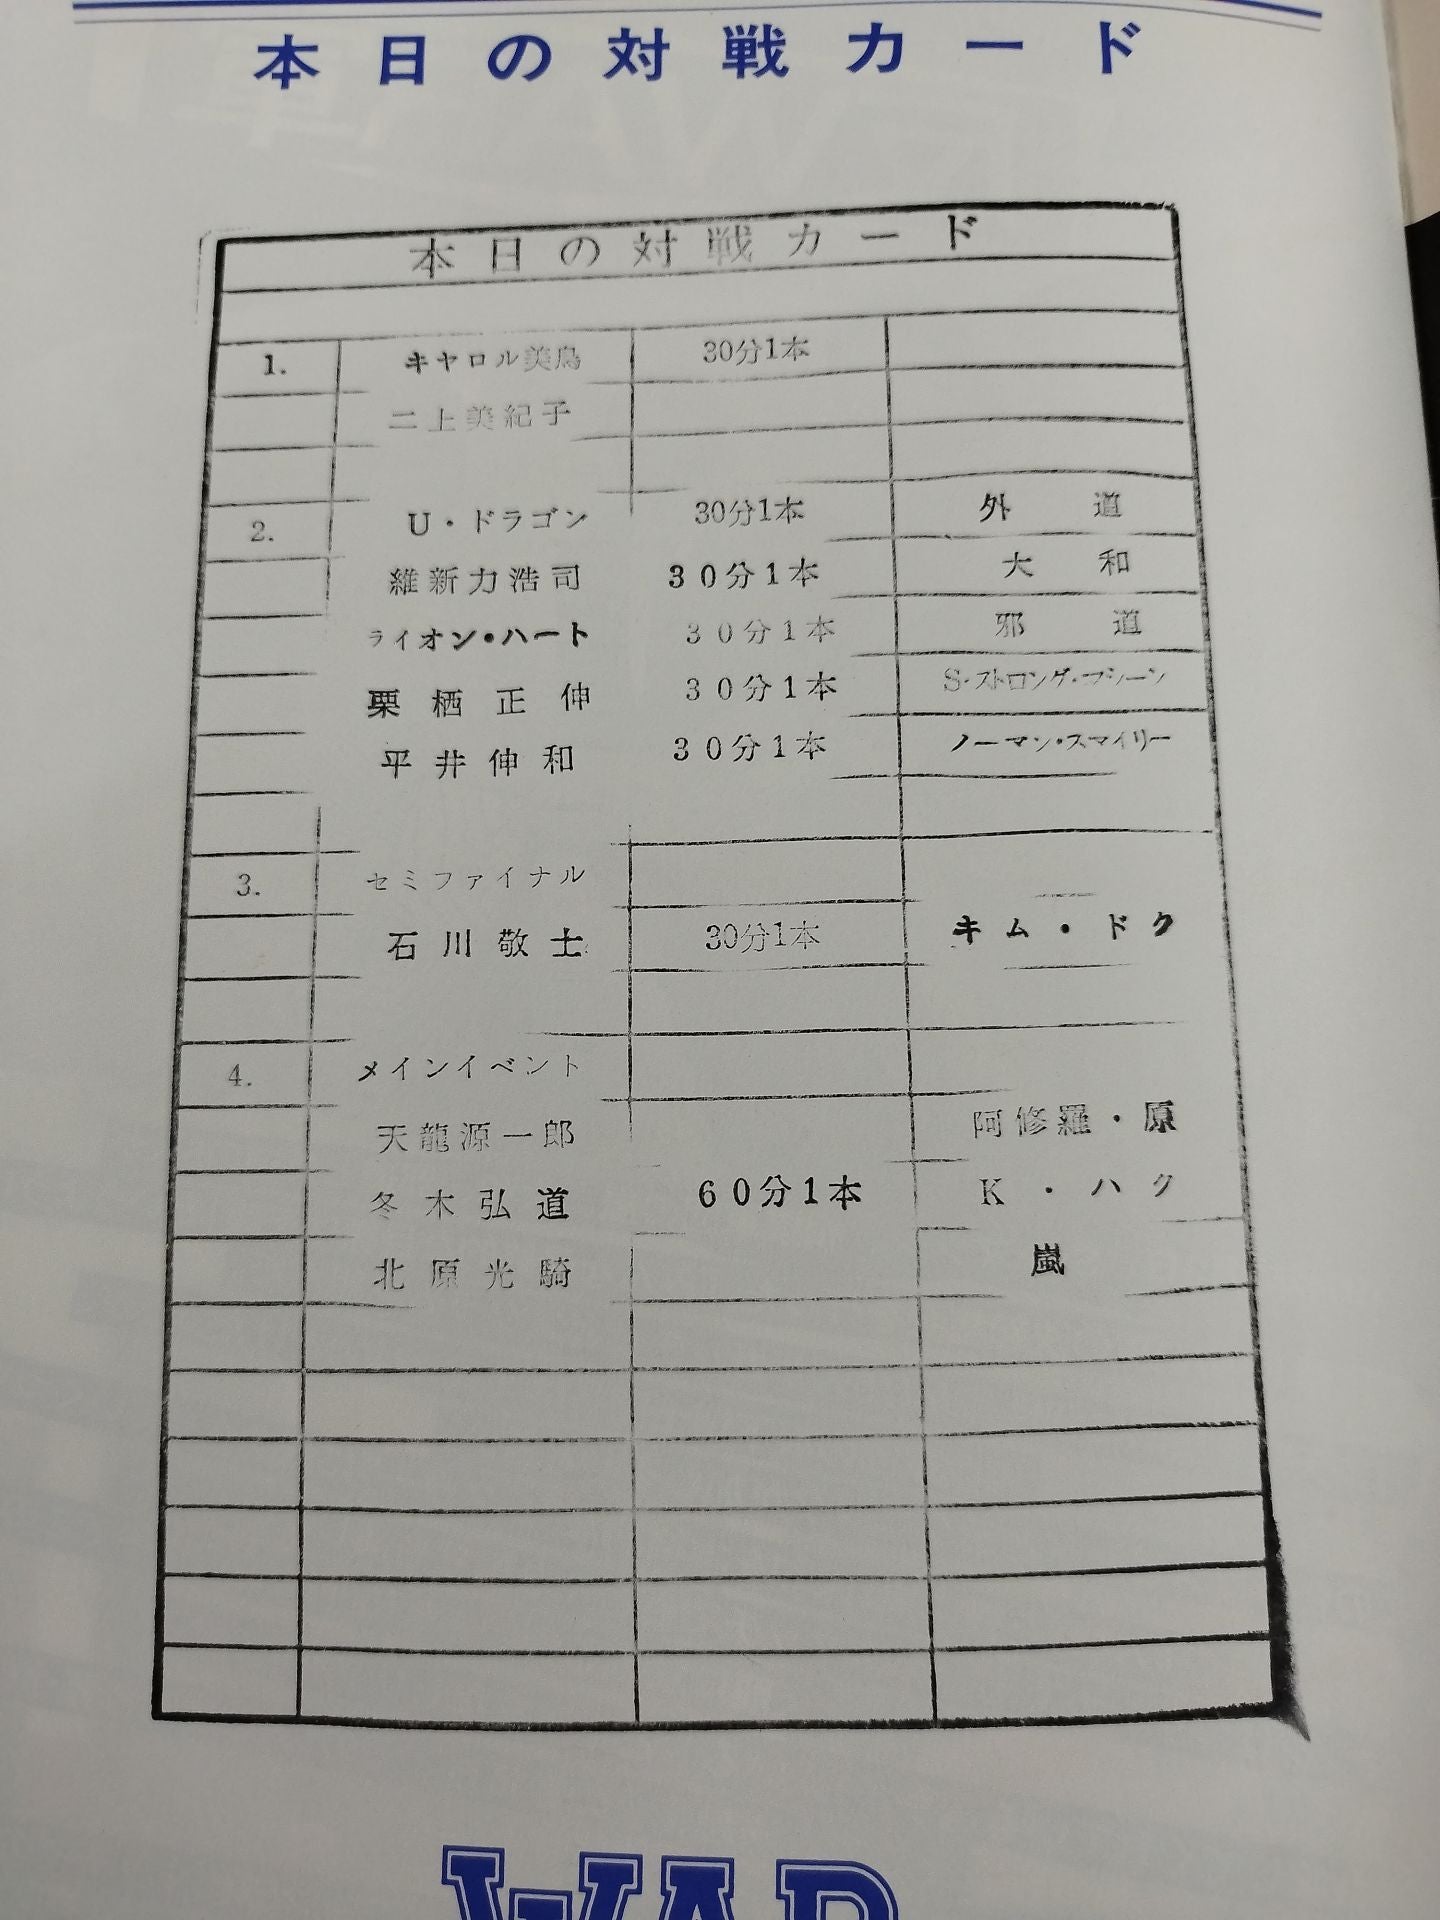 本日の対戦カード
本日の対戦カード
1. キャロル美鳥 30分1本
二上美紀子
2. U・ドラゴン 30分1本 外道
維新力浩司 30分1本 大和
ライオン・ハート 30分1本 邪道
栗栖正伸 30分1本 S・ストロング・マシーン
平井伸和 30分1本 ノーマン・スマイリー
3. セミファイナル
石川敬士 30分1本 キム・ドク
4. メインイベント
天龍源一郎 阿修羅・原
冬木弘道 60分1本 K・ハク
北原光騎 嵐
WAR